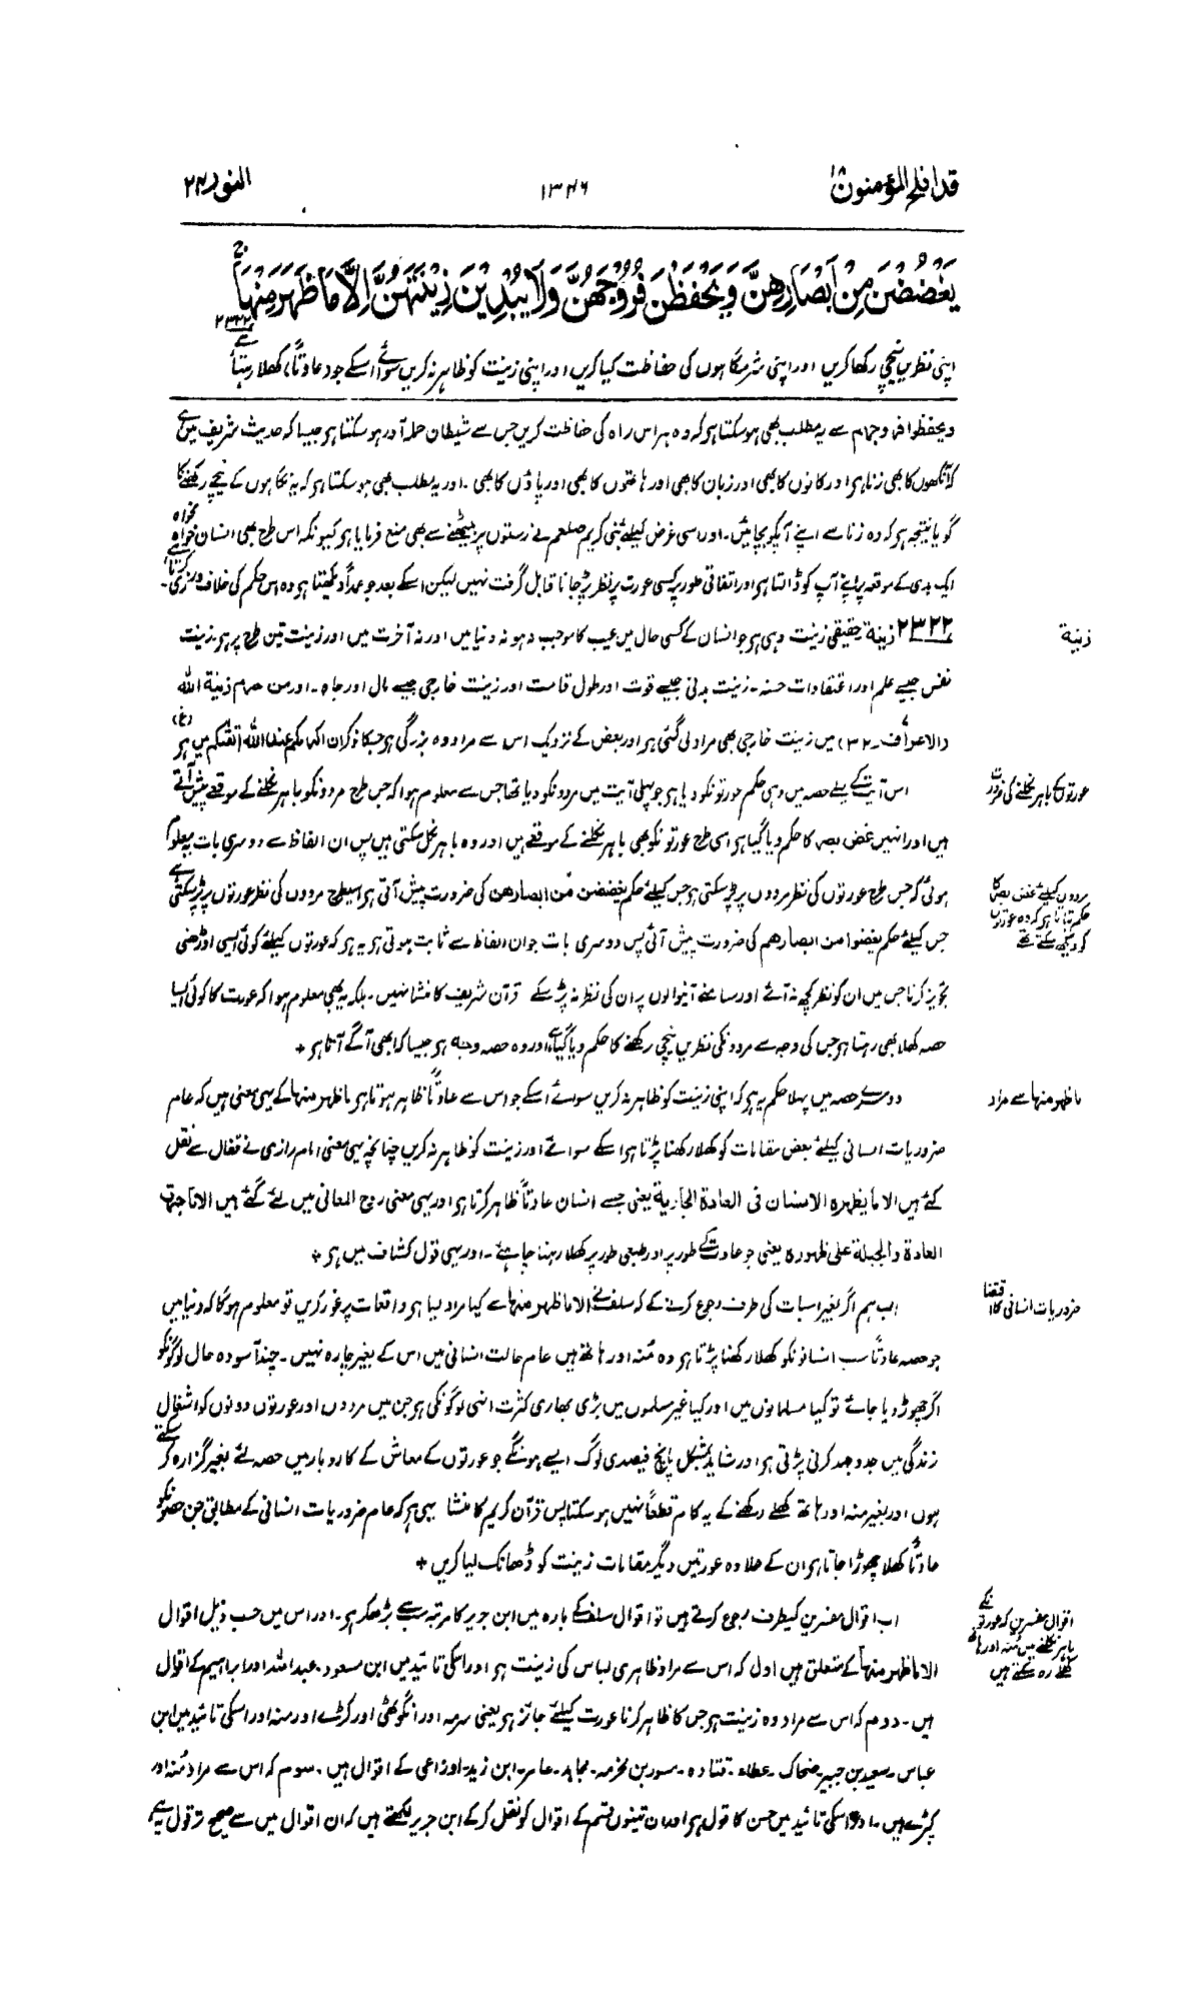 قد افلح المؤمنون ١٨
١٣٤٦
النور ٢٤
يَغْضُضْنَ مِنْ اَبْصَارِهِنَّ وَيَحْفَظْنَ فُرُوْجَهُنَّ وَلَا يُبْدِيْنَ زِيْنَتَهُنَّ اِلَّا مَا ظَهَرَ مِنْهَا
٢٣٢٢
اپنی نظریں نیچی رکھا کریں اور اپنی شرمگاہوں کی حفاظت کیا کریں اور اپنی زینت کو ظاہر نہ کریں سوائے اسکے جو عادتاً کھلا رہتا ہے
ویحفظوا فروجہم سے یہ مطلب بھی ہو سکتا ہو کہ وہ ہر اس راہ کی حفاظت کریں جس سے شیطان حملہ آور ہو سکتا ہو جیسا کہ حدیث شریف میں ہے
کہ آنکھوں کا بھی زنا ہو اور کانوں کا بھی اور زبان کا بھی اور ہاتھوں کا بھی اور پاؤں کا بھی۔ اور یہ مطلب بھی ہو سکتا ہو کہ یہ نگاہوں کے نیچے رکھنے کا
گویا نتیجہ ہو کہ وہ زنا سے اپنے آپکو بچائیں۔ اور اسی غرض کیلئے نبی کریم صلعم نے رستوں پر بیٹھنے سے بھی منع فرمایا ہو کیونکہ اس طرح بھی انسان خواہ مخواہ
ایک بدی کے موقعہ پر اپنے آپ کو ڈالتا ہو اور اتفاقی طور پر کسی عورت پر نظر پڑ جانا قابل گرفت نہیں لیکن اسکے بعد جو عمداً دیکھتا ہو وہ اس حکم کی خلاف ورزی کرتا ہے۔
زینۃ
٢٣٢٢ زینۃ حقیقی زینت وہی ہو جو انسان کے کسی حال میں عیب کا موجب نہ ہو نہ دنیا میں اور نہ آخرت میں اور زینت تین طرح پر ہو۔ زینت
نفس جیسے علم اور اعتقادات حسنہ۔ زینت بدنی جیسے قوت اور طول قامت اور زینت خارجی جیسے مال اور جاہ۔ اور من حرم زینۃ اللہ
(الاعراف۔ ٣٢) میں زینت خارجی بھی مراد لی گئی ہو اور بعض کے نزدیک اس سے مراد وہ بزرگی ہو جسکا ذکر ان اکرمکم عند اللہ اتقٰکم میں ہو (غ)
عورتوں کی باہر نکلنے کی ضرورت
اس آیت کے پہلے حصہ میں وہی حکم عورتونکو دیا ہو جو پہلی آیت میں مردونکو دیا تھا جس سے معلوم ہوا کہ جس طرح مردونکو باہر نکلنے کے موقعے پیش آتے
ہیں اور انہیں غض بصر کا حکم دیا گیا ہو اسی طرح عورتونکو بھی باہر نکلنے کے موقعے ہیں اور وہ باہر نکل سکتی ہیں پس ان الفاظ سے دوسری بات یہ معلوم
مردوں کیلئے غض بصر کا
حکم بتاتا ہو کہ وہ عورتوں
کو دیکھ سکتے تھے
ہوئی کہ جس طرح عورتوں کی نظر مردوں پر پڑ سکتی ہو جس کیلئے حکم یغضضن من ابصارھن کی ضرورت پیش آتی ہو اسیطرح مردوں کی نظر عورتوں پر پڑ سکتی ہے
جس کیلئے حکم یغضوا من ابصارھم کی ضرورت پیش آئی پس دوسری بات جو ان الفاظ سے ثابت ہوتی ہو یہ ہو کہ عورتوں کیلئے کوئی ایسی اوڑھنی
تجویز کرنا جس میں ان کو نظر کچھ نہ آئے اور سامنے آنیوالوں پر ان کی نظر نہ پڑ سکے قرآن شریف کا منشا نہیں۔ بلکہ یہ بھی معلوم ہوا کہ عورت کا کوئی ایسا
حصہ کھلا بھی رہتا ہو جس کی وجہ سے مردونکی نظریں نیچی رکھنے کا حکم دیا گیا ہے اور وہ حصہ وجہ ہو جیسا کہ ابھی آگے آتا ہو +
ما ظھر منہا سے مراد
دوسرے حصہ میں پہلا حکم یہ ہو کہ اپنی زینت کو ظاہر نہ کریں سوائے اسکے جو اس سے عادتاً ظاہر ہوتا ہو ما ظھر منہا کے یہی معنی ہیں کہ عام
ضروریات انسانی کیلئے بعض مقامات کو کھلا رکھنا پڑتا ہو اسکے سوائے اور زینت کو ظاہر نہ کریں چنانچہ یہی معنی امام رازی نے قفال سے نقل
کئے ہیں الا ما یظھرہ الانسان فی العادۃ الجاریۃ یعنی جسے انسان عادتاً ظاہر کرتا ہو اور یہی معنی روح المعانی میں لئے گئے ہیں الا ما جرت
العادۃ والجبلۃ علی ظہورہ یعنی جو عادت کے طور پر اور طبعی طور پر کھلا رہنا چاہئے۔ اور یہی قول کشاف میں ہو +
ضروریات انسانی کا اقتضا
اب ہم اگر بغیر اسبات کی طرف رجوع کرنے کے کہ سلف نے الا ما ظھر منہا سے کیا مراد لیا ہو واقعات پر غور کریں تو معلوم ہوگا کہ دنیا میں
جو حصہ عادتاً سب انسانونکو کھلا رکھنا پڑتا ہو وہ مُنہ اور ہاتھ ہیں عام حالت انسانی میں اس کے بغیر چارہ نہیں۔ چند آسودہ حال لوگونکو
اگر چھوڑ دیا جائے تو کیا مسلمانوں میں اور کیا غیر مسلموں میں بڑی بھاری کثرت انہی لوگونکی ہو جن میں مردوں اور عورتوں دونوں کو اشغال
زندگی میں جدوجہد کرنی پڑتی ہو اور شاید بمشکل پانچ فیصدی لوگ ایسے ہونگے جو عورتوں کے معاش کے کاروبار میں حصہ لئے بغیر گزارہ کر سکتے
ہوں اور بغیر منہ اور ہاتھ کھلے رکھنے کے یہ کام قطعاً نہیں ہو سکتا پس قرآن کریم کا منشا یہی ہو کہ عام ضروریات انسانی کے مطابق جن حصونکو
عادتاً کھلا چھوڑا جاتا ہو ان کے علاوہ عورتیں دیگر مقامات زینت کو ڈھانک لیا کریں +
اقوال مفسرین کہ عورتونکے
باہر نکلنے میں مُنہ اور ہاتھ
کھلے رہ سکتے ہیں
اب اقوال مفسرین کیطرف رجوع کرتے ہیں تو اقوال سلف کے بارہ میں ابن جریر کا مرتبہ سب سے بڑھکر ہو۔ اور اس میں حسب ذیل اقوال
الا ما ظھر منہا کے متعلق ہیں اول کہ اس سے مراد ظاہری لباس کی زینت ہو اور اسکی تائید میں ابن مسعود۔ عبداللہ اور ابراہیم کے اقوال
ہیں۔ دوم کہ اس سے مراد وہ زینت ہو جس کا ظاہر کرنا عورت کیلئے جائز ہو یعنی سرمہ اور انگوٹھی اور کڑے اور منہ اور اسکی تائید میں ابن
عباس۔ سعید بن جبیر۔ ضحاک۔ عطاء۔ قتادہ۔ مسور بن مخرمہ۔ مجاہد۔ عامر۔ ابن زید۔ اوزاعی کے اقوال ہیں۔ سوم کہ اس سے مراد مُنہ اور
کپڑے ہیں۔ اور اسکی تائید میں حسن کا قول ہو اور ان تینوں قسم کے اقوال کو نقل کر کے ابن جریر لکھتے ہیں کہ ان اقوال میں سے صحیح تر قول یہ ہے